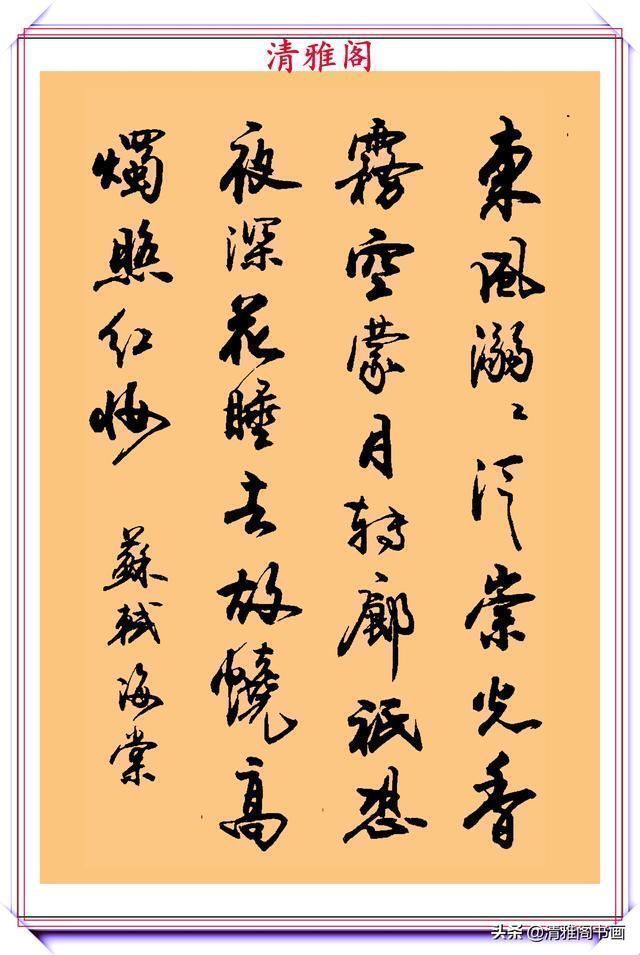 清雅阁
東風溺〻泛崇光香
霧空蒙月轉廊祇恐
夜深花睡去故燒高
燭照红妝
蘇軾海棠
头条 @清雅阁书画